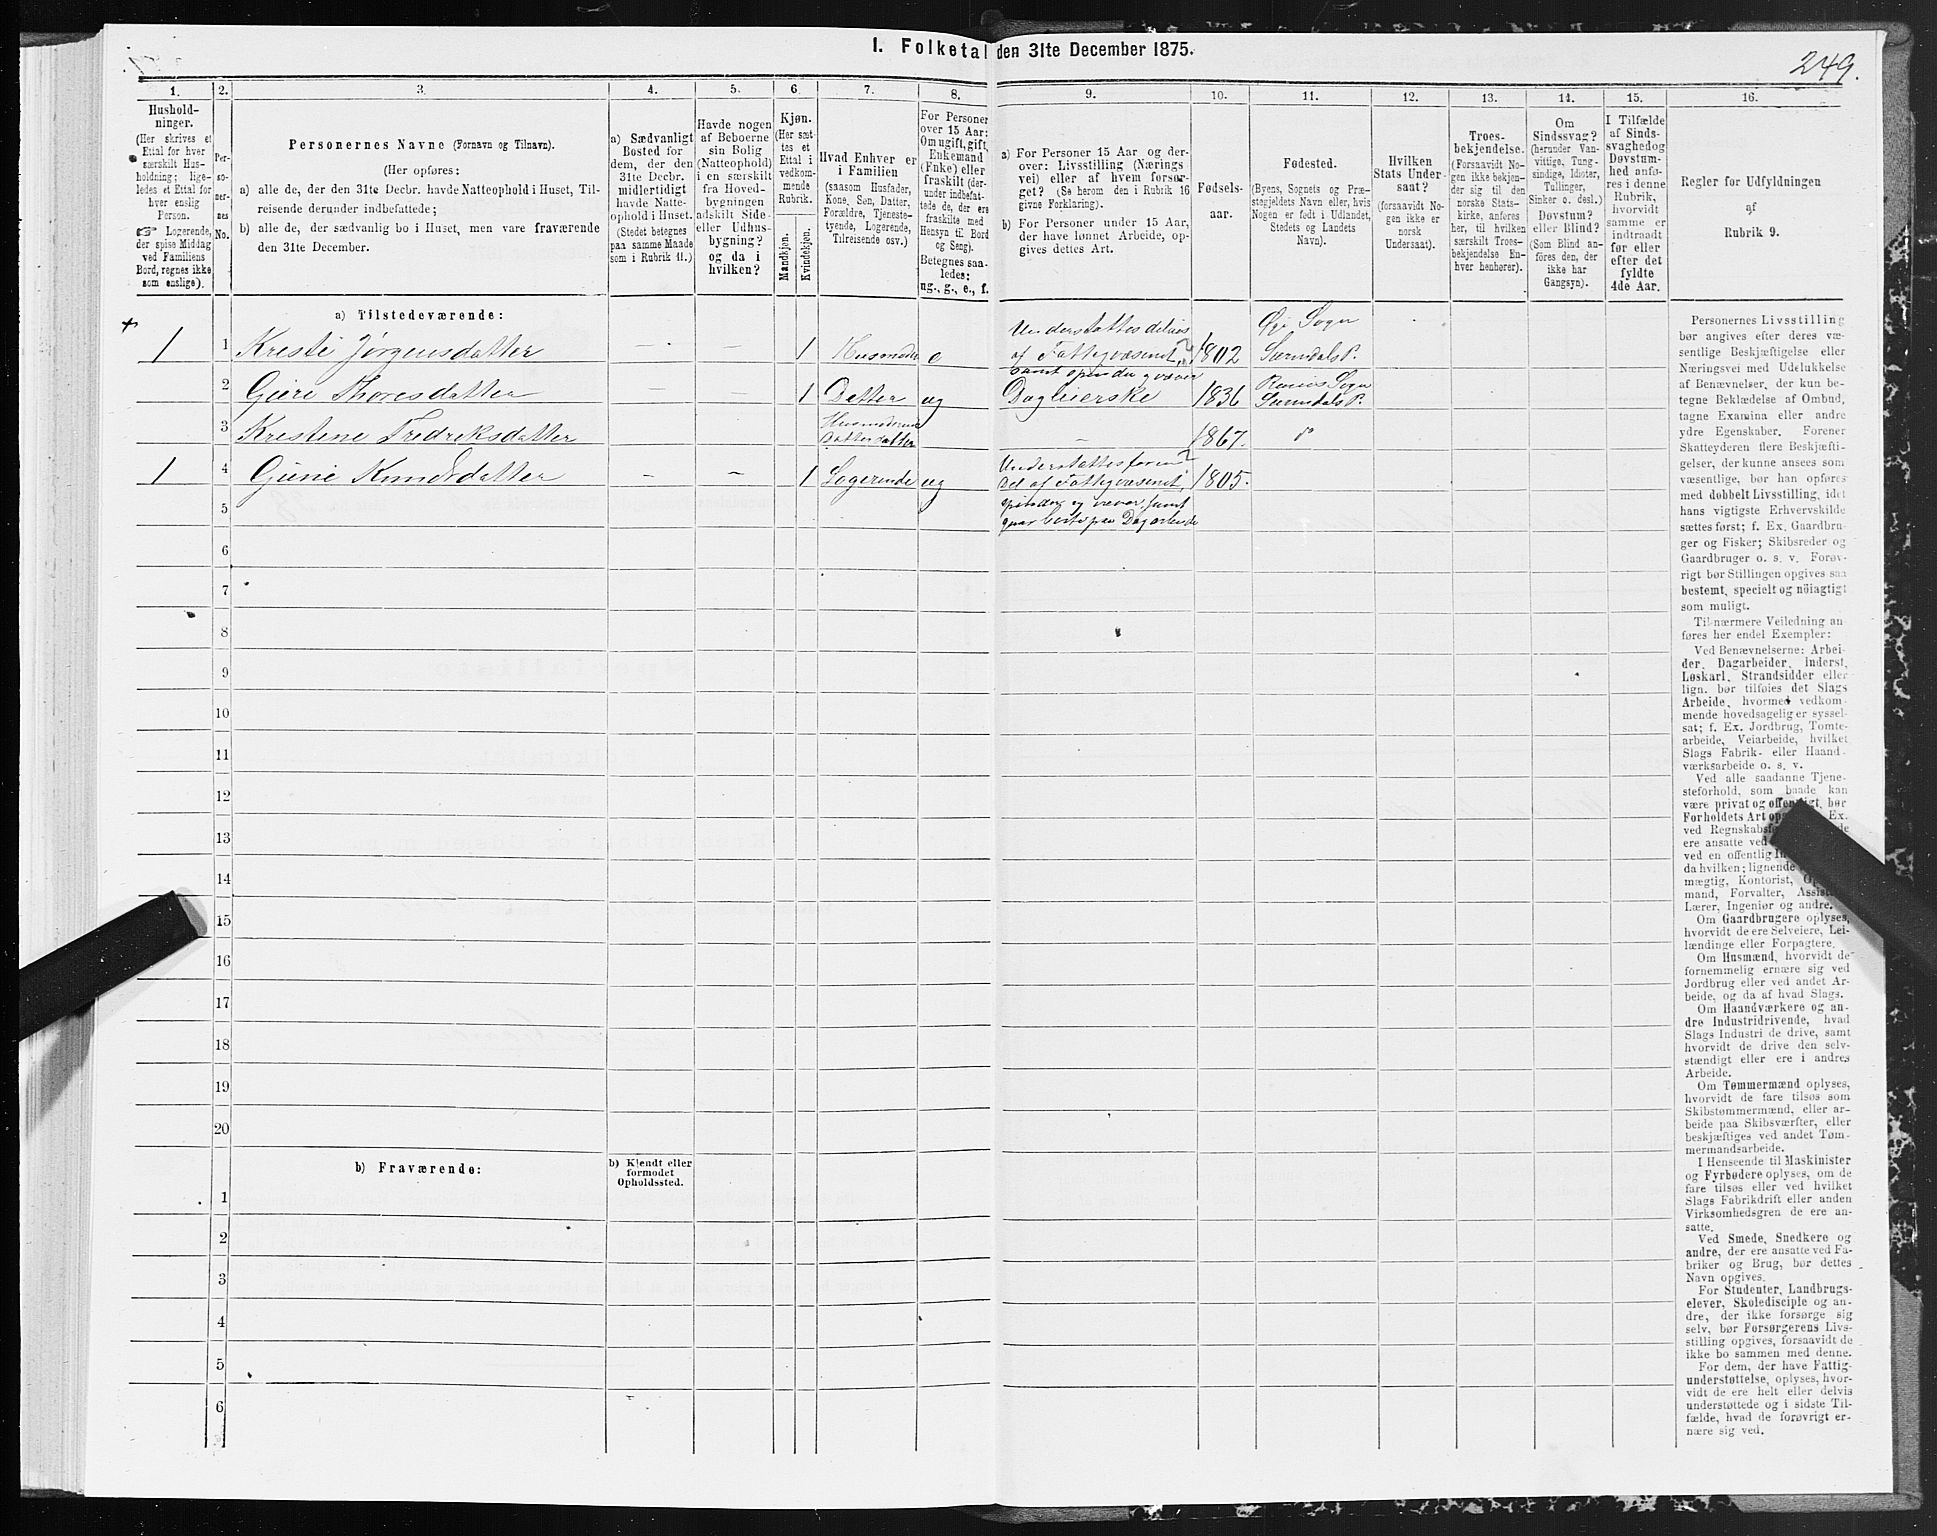 I. Folketal den 31te December 1875.
249.
1.
Hushold-
ninger.
(Her skrives et
Ettal for hver
særskilt Hus-
holdning; lige-
ledes et Ettal for
hver enslig
Person.
☞ Logerende,
der spise Middag
ved Familiens
Bord, regnes ikke
som enslige).
2.
Per-
so-
ner-
nes
No.
3.
Personernes Navne (Fornavn og Tilnavn).
(Her opføres:
a) alle de, der den 31te Decbr. havde Natteophold i Huset, Til-
reisende derunder indbefattede;
b) alle de, der sædvanlig bo i Huset, men vare fraværende
den 31te December.
4.
a) Sædvanligt
Bosted for
dem, der den
31te Decbr.
midlertidigt
havde Natte-
ophold i Huset.
(Stedet betegnes
paa samme Maade
som i Rubrik 11.)
5.
Havde nogen
af Beboerne
sin Bolig
(Natteophold)
i en særskilt
fra Hoved-
bygningen
adskilt Side-
eller Udhus-
bygning?
og da i
hvilken?
6.
Kjøn.
(Her sæt-
tes et
Ettal i
vedkom-
mende
Rubrik.
Mandkjøn.
Kvindekjøn.
7.
Hvad Enhver er
i Familien
(saasom Husfader,
Kone, Søn, Datter,
Forældre, Tjeneste-
tyende, Logerende,
Tilreisende osv.)
8.
For Personer
over 15 Aar:
Om ugift, gift,
Enkemand
(Enke) eller
fraskilt (der-
under indbefat-
tede de, der ere
fraskilte med
Hensyn til Bord
og Seng).
Betegnes saa-
ledes:
ug., g., e., f.
9.
a) For Personer 15 Aar og der-
over: Livsstilling (Nærings
vei) eller af hvem forsør-
get? (Se herom den i Rubrik 16
givne Forklaring).
b) For Personer under 15 Aar,
der have lønnet Arbeide, op-
gives dettes Art.
10.
Fødsels-
aar.
11.
Fødested.
(Byens, Sognets og Præ-
stegjeldets Navn eller, hvis
Nogen er født i Udlandet,
Stedets og Landets
Navn).
12.
Hvilken
Stats Under-
saat?
(forsaavidt No-
gen ikke er
norsk
Undersaat).
13.
Troes-
bekjendelse.
(Forsaavidt No-
gen ikke bekjen-
der sig til den
norske Stats-
kirke, anføres
her, til hvilken
særskilt Troes-
bekjendelse En-
hver henhører).
14.
Om
Sindssvag?
(herunder Van-
vittige, Tung-
sindige, Idioter,
Tullinger,
Sinker o. desl.)
Døvstum?
eller Blind?
(Som Blind an-
føres den, der
ikke har
Gangsyn).
15.
I Tilfælde
af Sinds-
svaghed og
Døvstum-
hed anfø-
res i denne
Rubrik,
hvorvidt
samme er
indtraadt
før eller
efter det
fyldte
4de Aar.
16.
Regler for Udfyldningen
af
Rubrik 9.
a) Tilstedeværende:
1 1 Kresti Jørgensdatter — — 1 e 1802
Understøttes delvis
af Fattigvæsenet,
Sogn
Surendals P.
2 Thoresdatter — — 1 Datter ug Dagleierske 1836
Sogn
Surendals P.
3 Krestene Fredriksdatter — 1867.
Datterdatter
1 4 Knudsdatter — — 1 Logerende ug 1805.
Del af Fattigvæsenet,
5
6
7
8
9
10
11
12
13
14
15
16
17
18
19
20
b) Fraværende:
b) Kjendt eller
formodet
Opholdssted.
1
2
3
4
5
6
Personernes Livsstilling
bør angives efter deres væ-
sentlige Beskjæftigelse eller
Næringsvei med Udelukkelse
af Benævnelser, der kun be-
tegne Beklædelse af Ombud,
tagne Examina eller andre
ydre Egenskaber. Forener
Skatteyderen flere Beskjæfti-
gelser, der kunne ansees som
væsentlige, bør han opføres
med dobbelt Livsstilling, idet
hans vigtigste Erhvervskilde
sættes først; f. Ex. Gaardbru-
ger og Fisker; Skibsreder og
Gaardbruger o. s. v. Forøv-
rigt bør Stillingen opgives saa
bestemt, specielt og nöiagtigt
som muligt.
Til nærmere Veiledning an
føres her endel Exempler:
Ved Benævnelserne: Arbei-
der, Dagarbeider, Inderst,
Løskarl, Strandsidder eller
lign. bør tilføies det Slags
Arbeide, hvormed vedkom-
mende hovedsagelig er syssel-
sat; f. Ex. Jordbrug, Tomte-
arbeide, Veiarbeide, hvilket
Slags Fabrik- eller Haand-
værksarbeide o. s. v.
Ved alle saadanne Tjene-
steforhold, som baade kan
være privat og offentligt, bør
Forholdets Art Ex.
ved
ere ansatte ved
ved en offentlig
da hvilken; lignende
mægtig, Kontorist,
mand, Forvalter,
Lærer, Ingeniør og andre.
Om Gaardbrugere oplyses,
hvorvidt de ere Selveiere, Lei-
lændinge eller Forpagtere.
Om Husmænd, hvorvidt de
fornemmelig ernære sig ved
Jordbrug eller ved andet Ar-
beide, og da af hvad Slags.
Om Haandværkere og an-
dre Industridrivende, hvad
Slags Industri de drive, samt
hvorvidt de drive den selv-
stændigt eller ere i andres
Arbeide.
Om Tømmermænd oplyses,
hvorvidt de fare tilsøs som
Skibstømmermænd, eller ar-
beide paa Skibsværfter, eller
beskjæftiges ved andet Tøm-
mermandsarbeide.
I Henseende til Maskinister
og Fyrbødere oplyses, om de
fare tilsøs eller ved hvilket
Slags Fabrikdrift eller anden
Virksomhedsgren de ere an-
satte.
Ved Smede, Snedkere og
andre, der ere ansatte ved Fa-
briker og Brug, bør dettes
Navn opgives.
For Studenter, Landbrugs-
elever, Skoledisciple og an-
dre, der ikke forsørge sig
selv, bør Forsørgerens Livs-
stilling opgives, forsaavidt de
ikke bo sammen med denne.
For dem, der have Fattig-
understøttelse, oplyses, hvor-
vidt de ere helt eller delvis
understøttede og i sidste Til-
fælde, hvad de forøvrigt er-
nære sig ved.